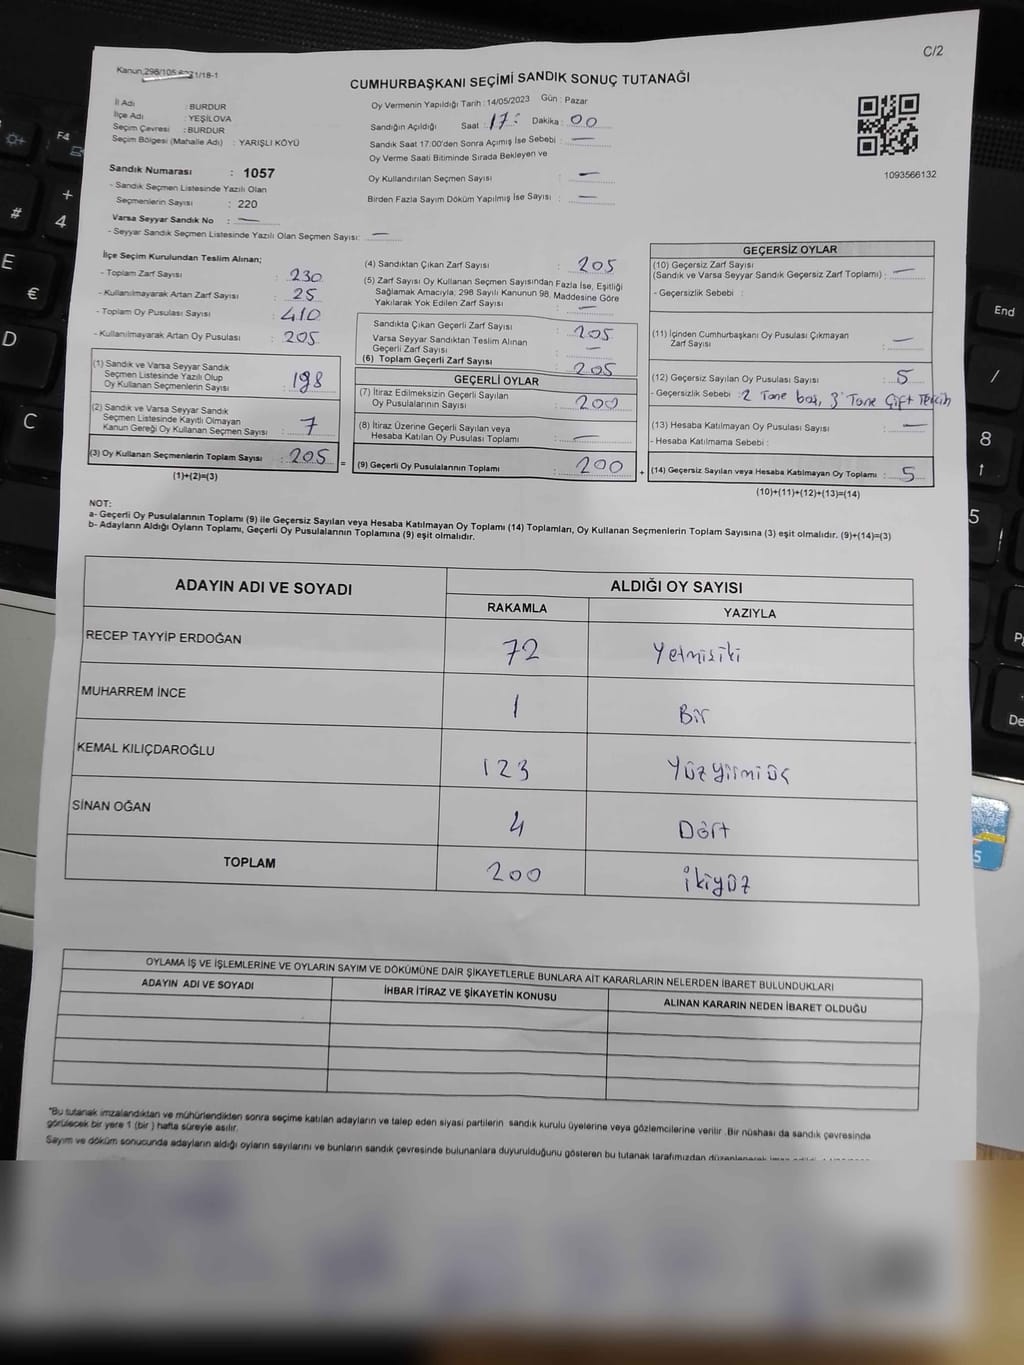 C/2
CUMHURBAŞKANI SEÇİMİ SANDIK SONUÇ TUTANAĞI
İl Adı : BURDUR
İlçe Adı : YEŞİLOVA
Seçim Çevresi : BURDUR
Seçim Bölgesi (Mahalle Adı) : YARIŞLI KÖYÜ
Sandık Numarası : 1057
- Sandık Seçmen Listesinde Yazılı Olan
Seçmenlerin Sayısı : 220
Varsa Seyyar Sandık No : —
- Seyyar Sandık Seçmen Listesinde Yazılı Olan Seçmen Sayısı: —
Oy Vermenin Yapıldığı Tarih : 14/05/2023 Gün : Pazar
Sandığın Açıldığı Saat : 17: Dakika : 00
Sandık Saat 17:00'den Sonra Açılmış İse Sebebi : —
Oy Verme Saati Bitiminde Sırada Bekleyen ve
Oy Kullandırılan Seçmen Sayısı : —
Birden Fazla Sayım Döküm Yapılmış İse Sayısı : —
1093566132
İlçe Seçim Kurulundan Teslim Alınan;
- Toplam Zarf Sayısı : 230
- Kullanılmayarak Artan Zarf Sayısı : 25
- Toplam Oy Pusulası Sayısı : 410
- Kullanılmayarak Artan Oy Pusulası : 205
(1) Sandık ve Varsa Seyyar Sandık
Seçmen Listesinde Yazılı Olup
Oy Kullanan Seçmenlerin Sayısı : 198
(2) Sandık ve Varsa Seyyar Sandık
Seçmen Listesinde Kayıtlı Olmayan
Kanun Gereği Oy Kullanan Seçmen Sayısı : 7
(3) Oy Kullanan Seçmenlerin Toplam Sayısı : 205
(1)+(2)=(3)
(4) Sandıktan Çıkan Zarf Sayısı : 205
(5) Zarf Sayısı Oy Kullanan Seçmen Sayısından Fazla İse, Eşitliği
Sağlamak Amacıyla, 298 Sayılı Kanunun 98. Maddesine Göre
Yakılarak Yok Edilen Zarf Sayısı : —
Sandıkta Çıkan Geçerli Zarf Sayısı : 205
Varsa Seyyar Sandıktan Teslim Alınan
Geçerli Zarf Sayısı : —
(6) Toplam Geçerli Zarf Sayısı : 205
GEÇERLİ OYLAR
(7) İtiraz Edilmeksizin Geçerli Sayılan
Oy Pusulalarının Sayısı : 200
(8) İtiraz Üzerine Geçerli Sayılan veya
Hesaba Katılan Oy Pusulası Toplamı : —
= (9) Geçerli Oy Pusulalarının Toplamı : 200
GEÇERSİZ OYLAR
(10) Geçersiz Zarf Sayısı
(Sandık ve Varsa Seyyar Sandık Geçersiz Zarf Toplamı) : —
- Geçersizlik Sebebi :
(11) İçinden Cumhurbaşkanı Oy Pusulası Çıkmayan
Zarf Sayısı : —
(12) Geçersiz Sayılan Oy Pusulası Sayısı : 5
- Geçersizlik Sebebi : 2 Tane boş, 3 Tane Çift Tercih
(13) Hesaba Katılmayan Oy Pusulası Sayısı : —
- Hesaba Katılmama Sebebi :
+ (14) Geçersiz Sayılan veya Hesaba Katılmayan Oy Toplamı : 5
(10)+(11)+(12)+(13)=(14)
NOT:
a- Geçerli Oy Pusulalarının Toplamı (9) ile Geçersiz Sayılan veya Hesaba Katılmayan Oy Toplamı (14) Toplamları, Oy Kullanan Seçmenlerin Toplam Sayısına (3) eşit olmalıdır. (9)+(14)=(3)
b- Adayların Aldığı Oyların Toplamı, Geçerli Oy Pusulalarının Toplamına (9) eşit olmalıdır.
ADAYIN ADI VE SOYADI ALDIĞI OY SAYISI
RAKAMLA YAZIYLA
RECEP TAYYİP ERDOĞAN 72 Yetmişiki
MUHARREM İNCE 1 Bir
KEMAL KILIÇDAROĞLU 123 Yüzyirmiüç
SİNAN OĞAN 4 Dört
TOPLAM 200 İkiyüz
OYLAMA İŞ VE İŞLEMLERİNE VE OYLARIN SAYIM VE DÖKÜMÜNE DAİR ŞİKAYETLERLE BUNLARA AİT KARARLARIN NELERDEN İBARET BULUNDUKLARI
ADAYIN ADI VE SOYADI İHBAR İTİRAZ VE ŞİKAYETİN KONUSU ALINAN KARARIN NEDEN İBARET OLDUĞU
*Bu tutanak imzalandıktan ve mühürlendikten sonra seçime katılan adayların ve talep eden siyasi partilerin sandık kurulu üyelerine veya gözlemcilerine verilir. Bir nüshası da sandık çevresinde
görülecek bir yere 1 (bir) hafta süreyle asılır.
Sayım ve döküm sonucunda adayların aldığı oyların sayılarını ve bunların sandık çevresinde bulunanlara duyurulduğunu gösteren bu tutanak tarafımızdan düzenlenerek